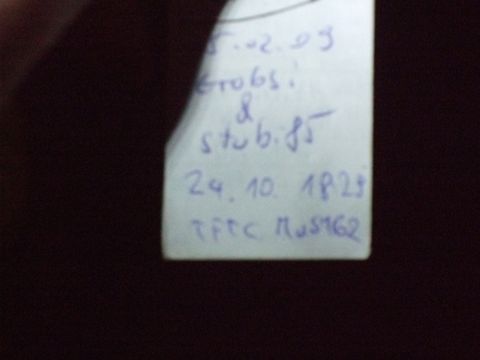 5.02.09
Grobsi
&
stub.85
24.10. 18:29
TFTC MuS162